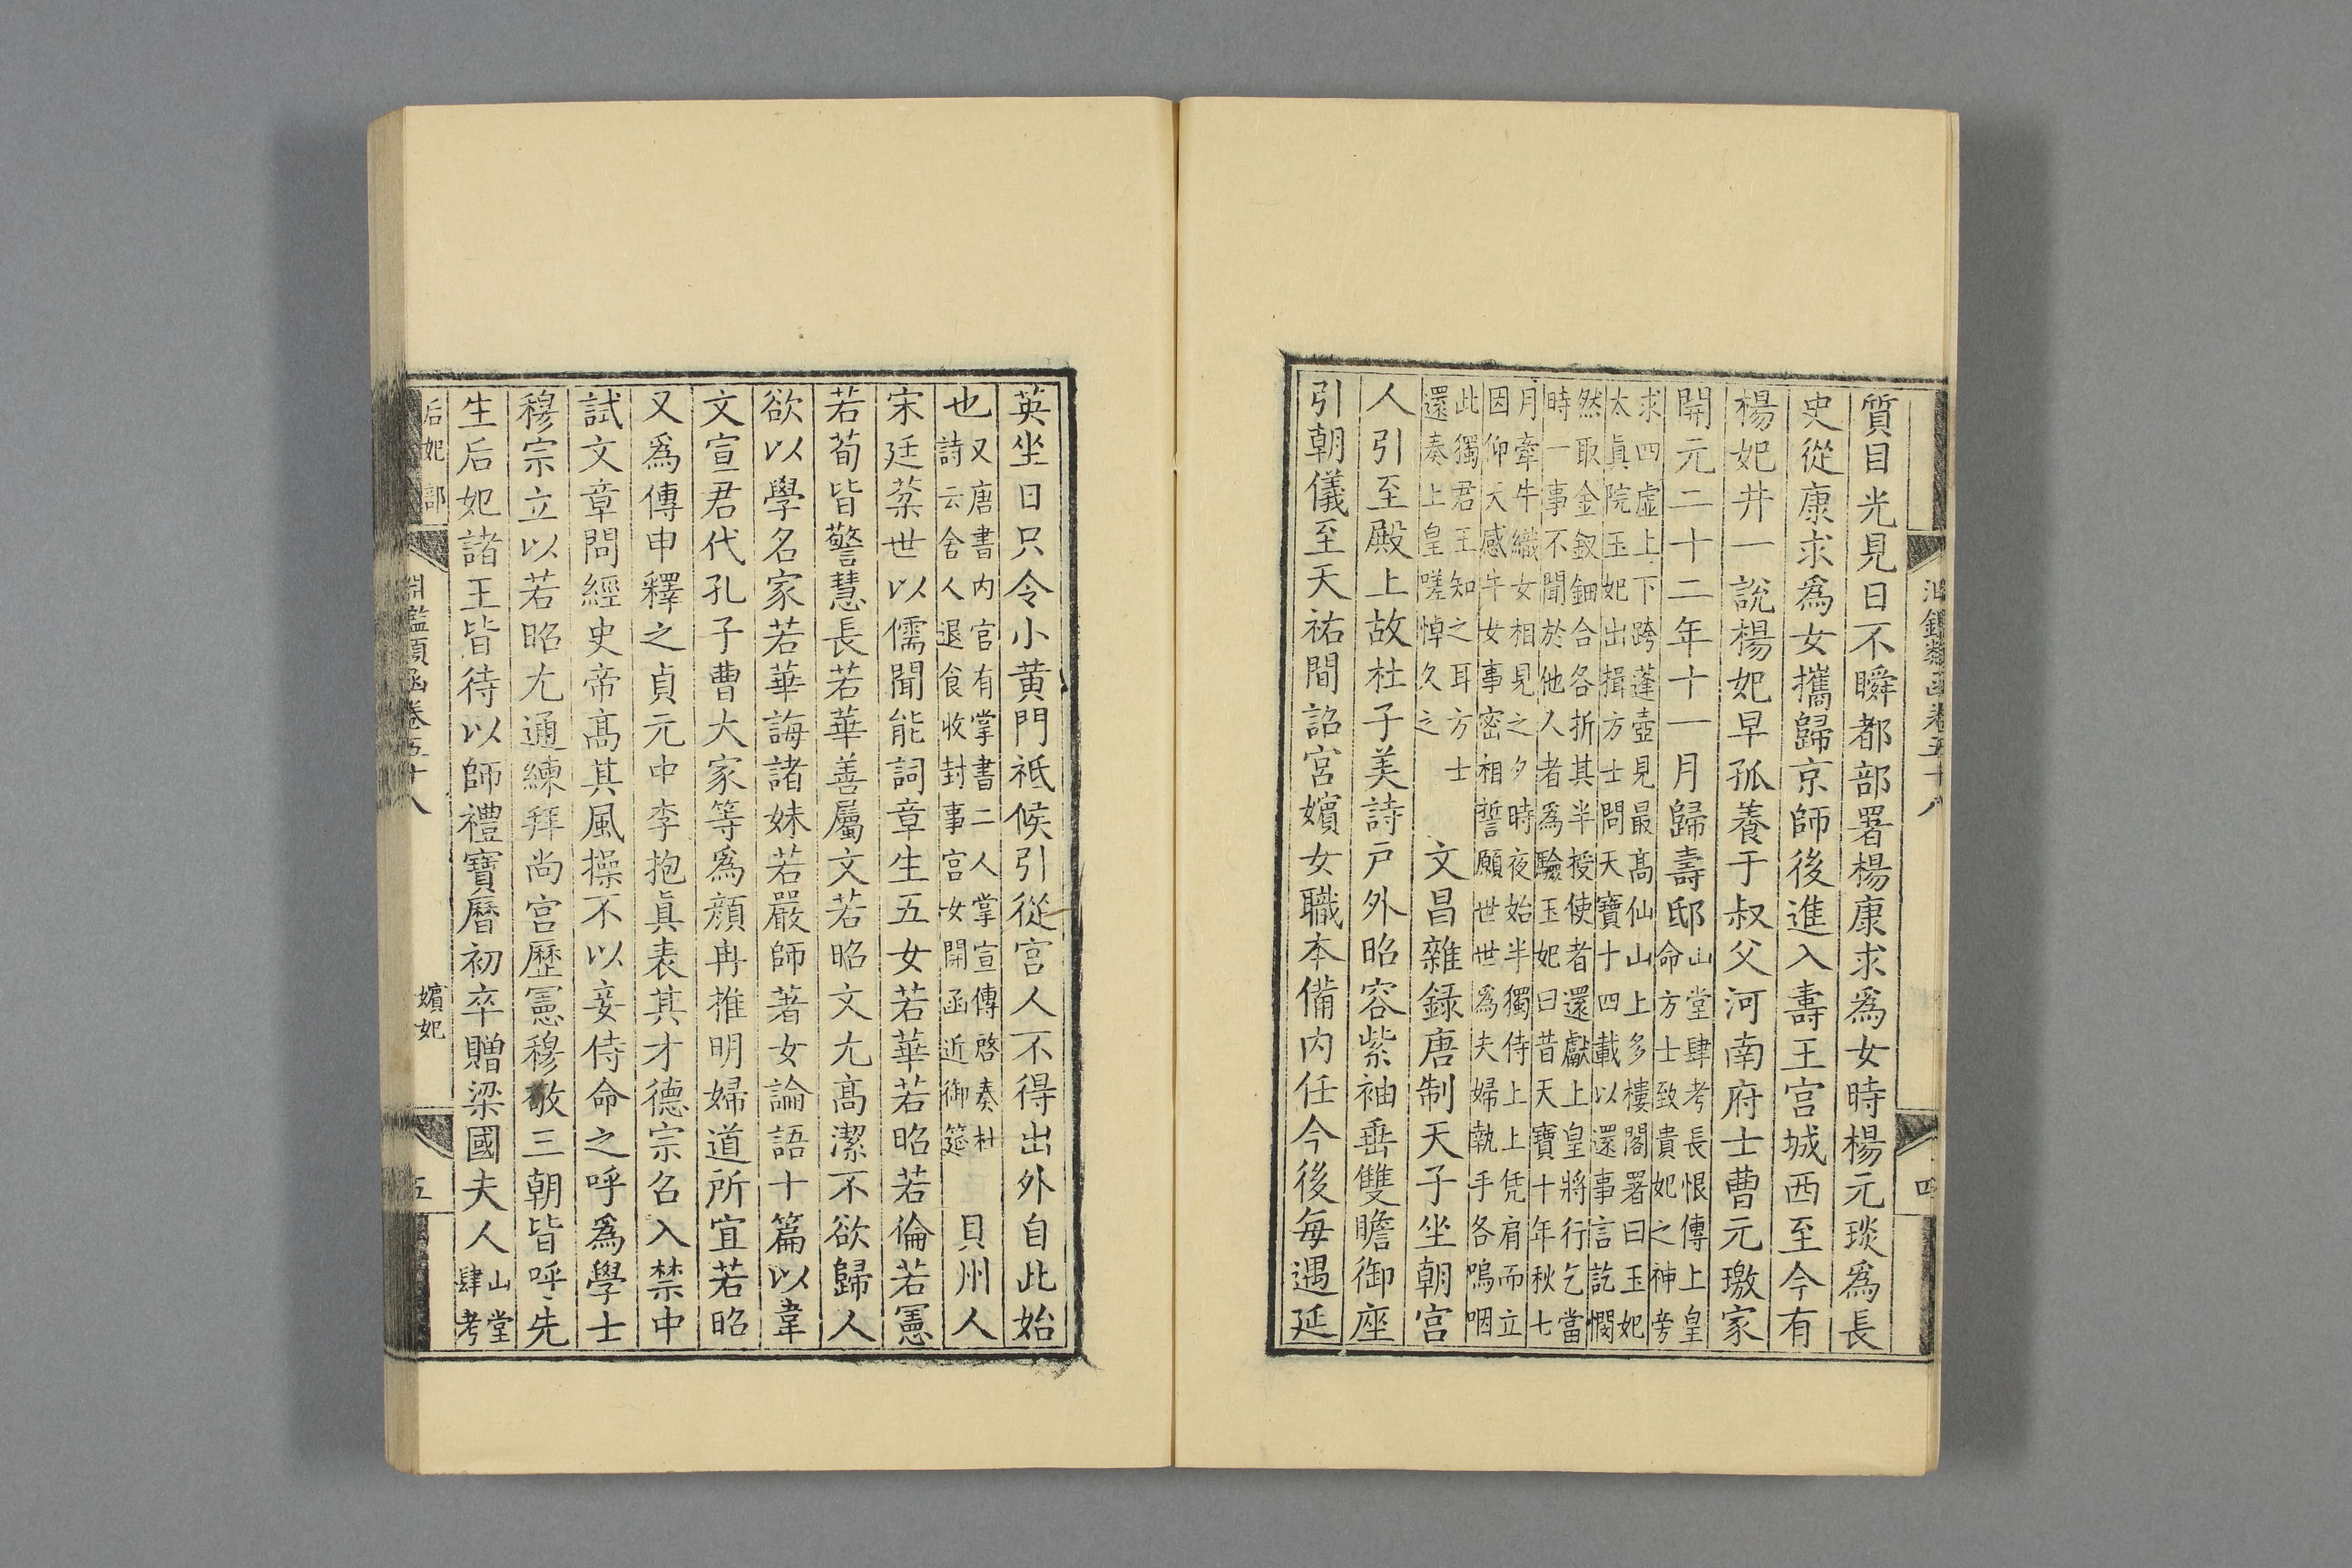 質目光見日不瞬都部署楊康求爲女時楊元琰爲長
史從康求爲女攜歸京師後進入壽王宮城西至今有
楊妃井一說楊妃早孤養于叔父河南府士曹元璬家
開元二十二年十一月歸壽邸
山堂肆考長恨傳上皇
命方士致貴妃之神旁
求四虛上下跨蓬壺見最高仙山上多樓閣署曰玉妃
太真院玉妃出揖方士問天寶十四載以還事言訖憫
然取金釵鈿合各折其半授使者還獻上皇將行乞當
時一事不聞於他人者爲驗玉妃曰昔天寶十年秋七
月牽牛織女相見之夕時夜始半獨侍上上凭肩而立
因仰天感牛女事密相誓願世世爲夫婦執手各嗚咽
此獨君王知之耳方士
還奏上皇嗟悼久之
文昌雜録唐制天子坐朝宮
人引至殿上故杜子美詩戸外昭容紫袖垂雙瞻御座
引朝儀至天祐間詔宮嬪女職本備内任今後每遇延
英坐日只令小黄門祗候引從宮人不得出外自此始
也
又唐書内官有掌書二人掌宣傳啓奏杜
詩云舍人退食收封事宮女開函近御筵
貝州人
宋廷棻世以儒聞能詞章生五女若華若昭若倫若憲
若荀皆警慧長若華善屬文若昭文尤高潔不欲歸人
欲以學名家若華誨諸妹若嚴師著女論語十篇以韋
文宣君代孔子曹大家等爲顔冉推明婦道所宜若昭
又爲傳申釋之貞元中李抱真表其才德宗召入禁中
試文章問經史帝高其風操不以妾侍命之呼爲學士
穆宗立以若昭尤通練拜尚宮歷憲穆敬三朝皆呼先
生后妃諸王皆待以師禮寶曆初卒贈梁國夫人
山堂
肆考
后妃部
淵鑑類函卷五十八
嬪妃
五